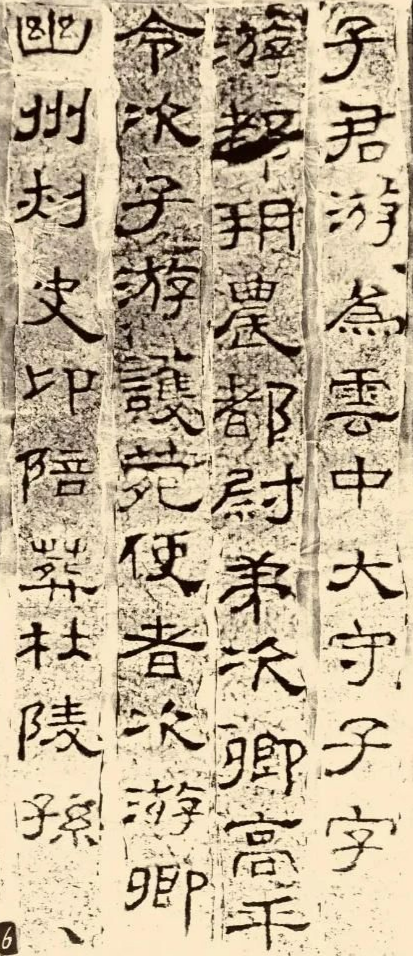 子君游為雲中大守子字
游都朔農都尉弟次卿高平
令次子游護苑使者次游卿
幽州刺史印陪葬杜陵孫
6